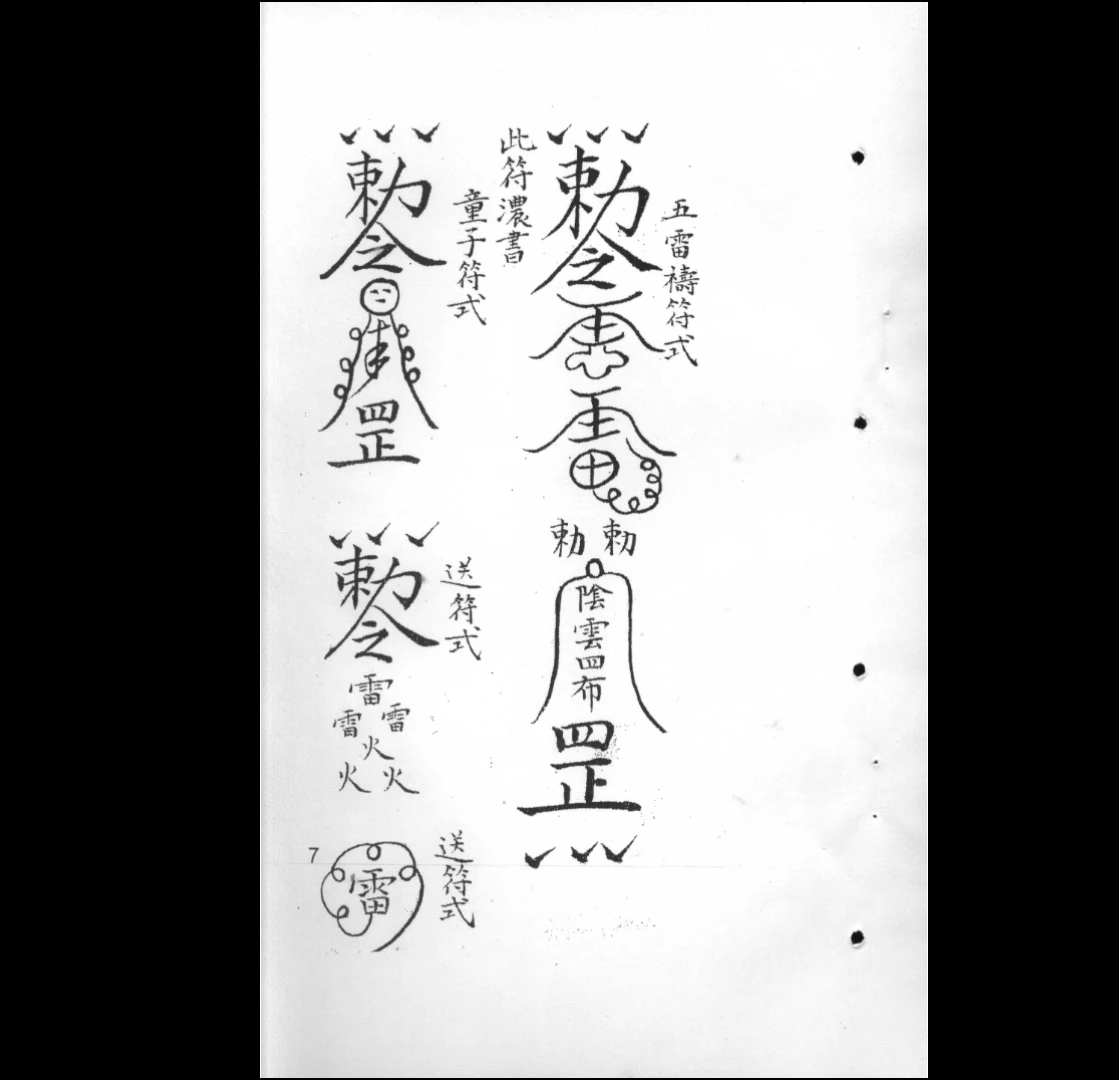 五雷禱符式
勅令
勅勅
陰雲四布
罡
此符濃書
童子符式
勅令
罡
送符式
勅令
雷
雷雷
火
火火
送符式
雷
7